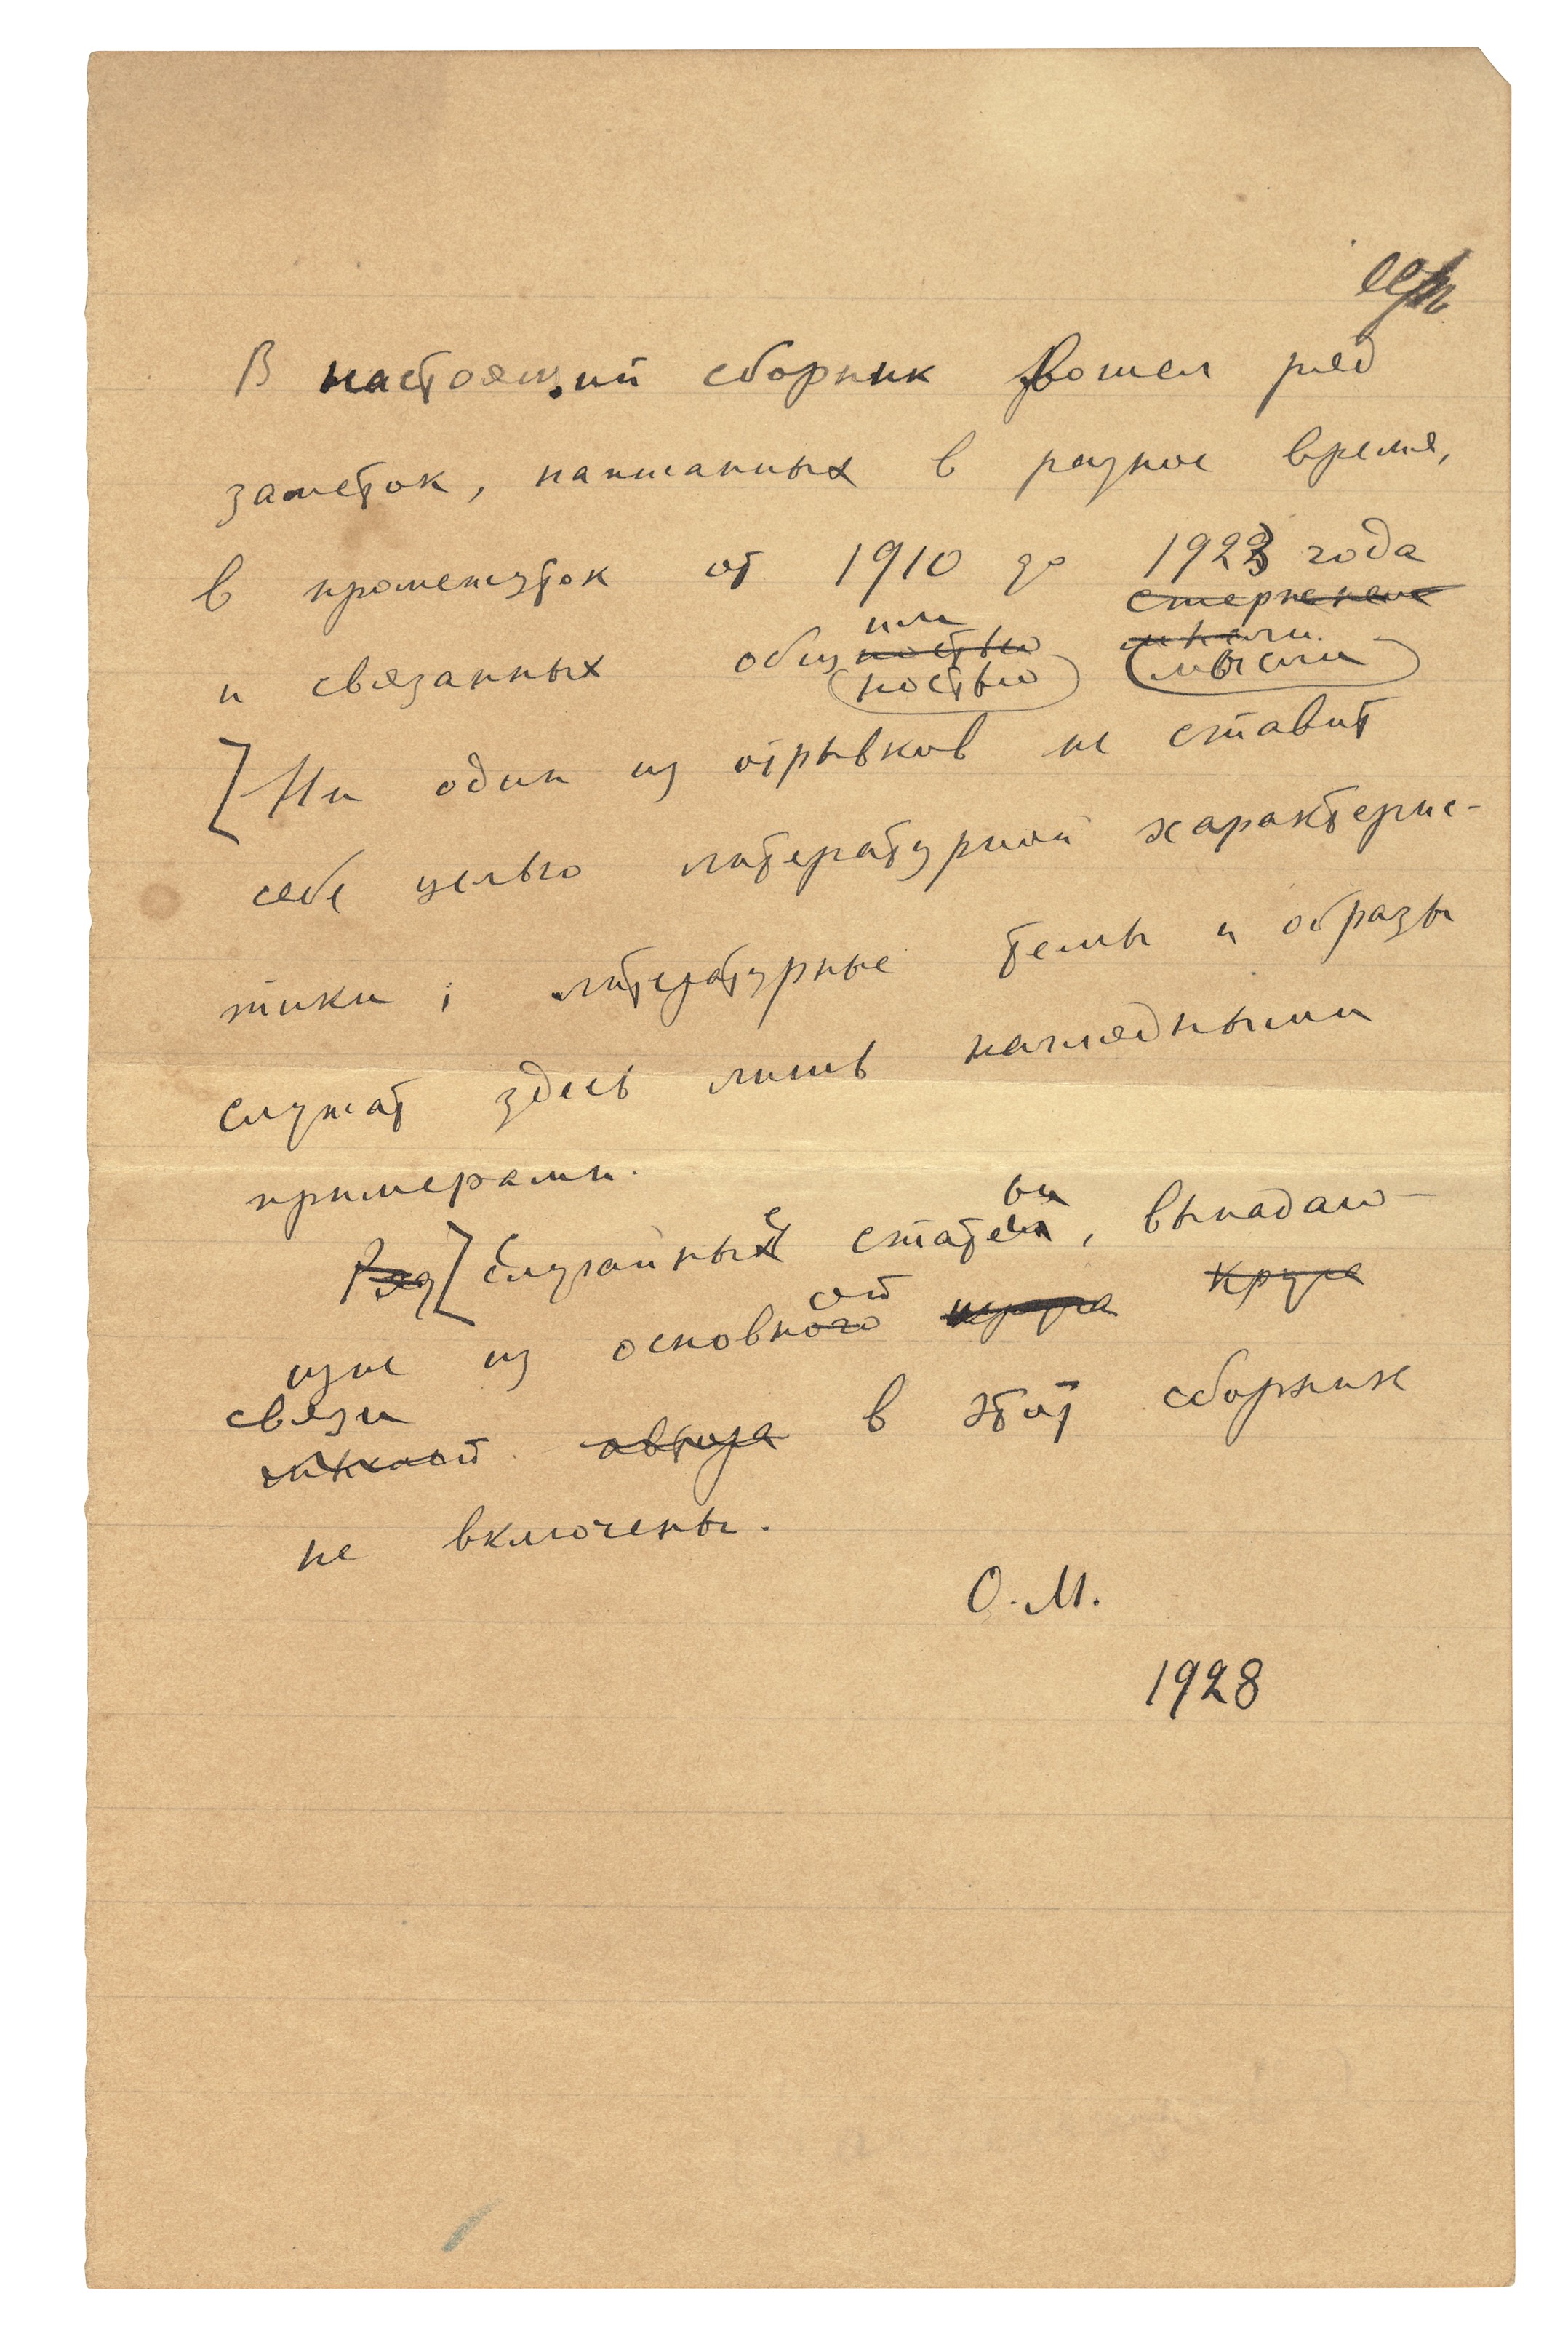 В настоящий сборник вошел ряд
заметок, написанных в разное время,
в промежуток от 1910 до 1923 года
и связанных общ
ими
ностью
ностью мысли
Ни один из отрывков не ставит
себе целью литературной характерис-
тики; литературные темы и образы
служат здесь лишь наглядными
примерами.
Ряд [Случайные статьи, выпадаю-
щие из основной круга
связи
автора в этот сборник
не включены.
О.М.
1928